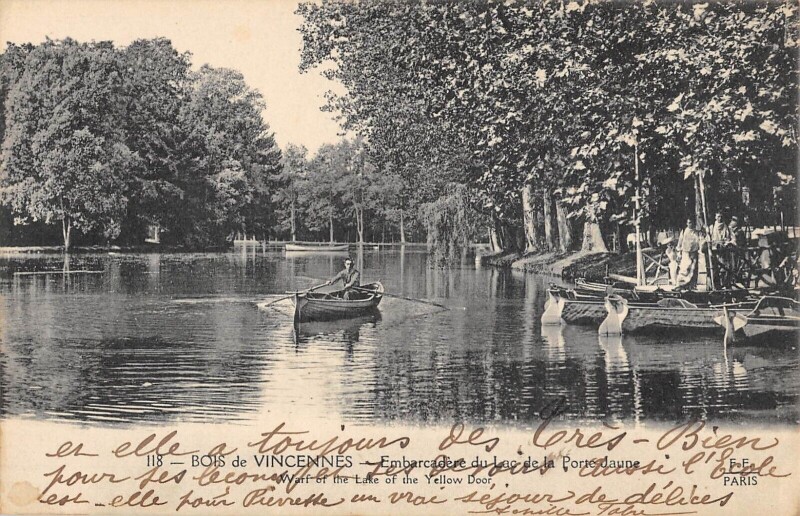 et elle a toujours des très-Bien
118 — BOIS de VINCENNES — Embarcadère du Lac de la Porte Jaune
F. F.
PARIS
pour ses leçons aussi l'École
Warf of the Lake of the Yellow Door
est-elle pour Pierrette un vrai séjour de délices
Achille